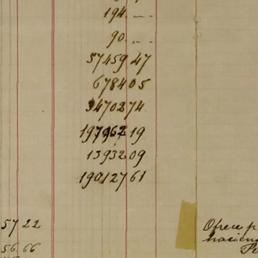 194 . --
90 . --
57459 47
6784 05
34702 74
197962 19
13932 09
190127 61
57 22
56 66
Ofrece p